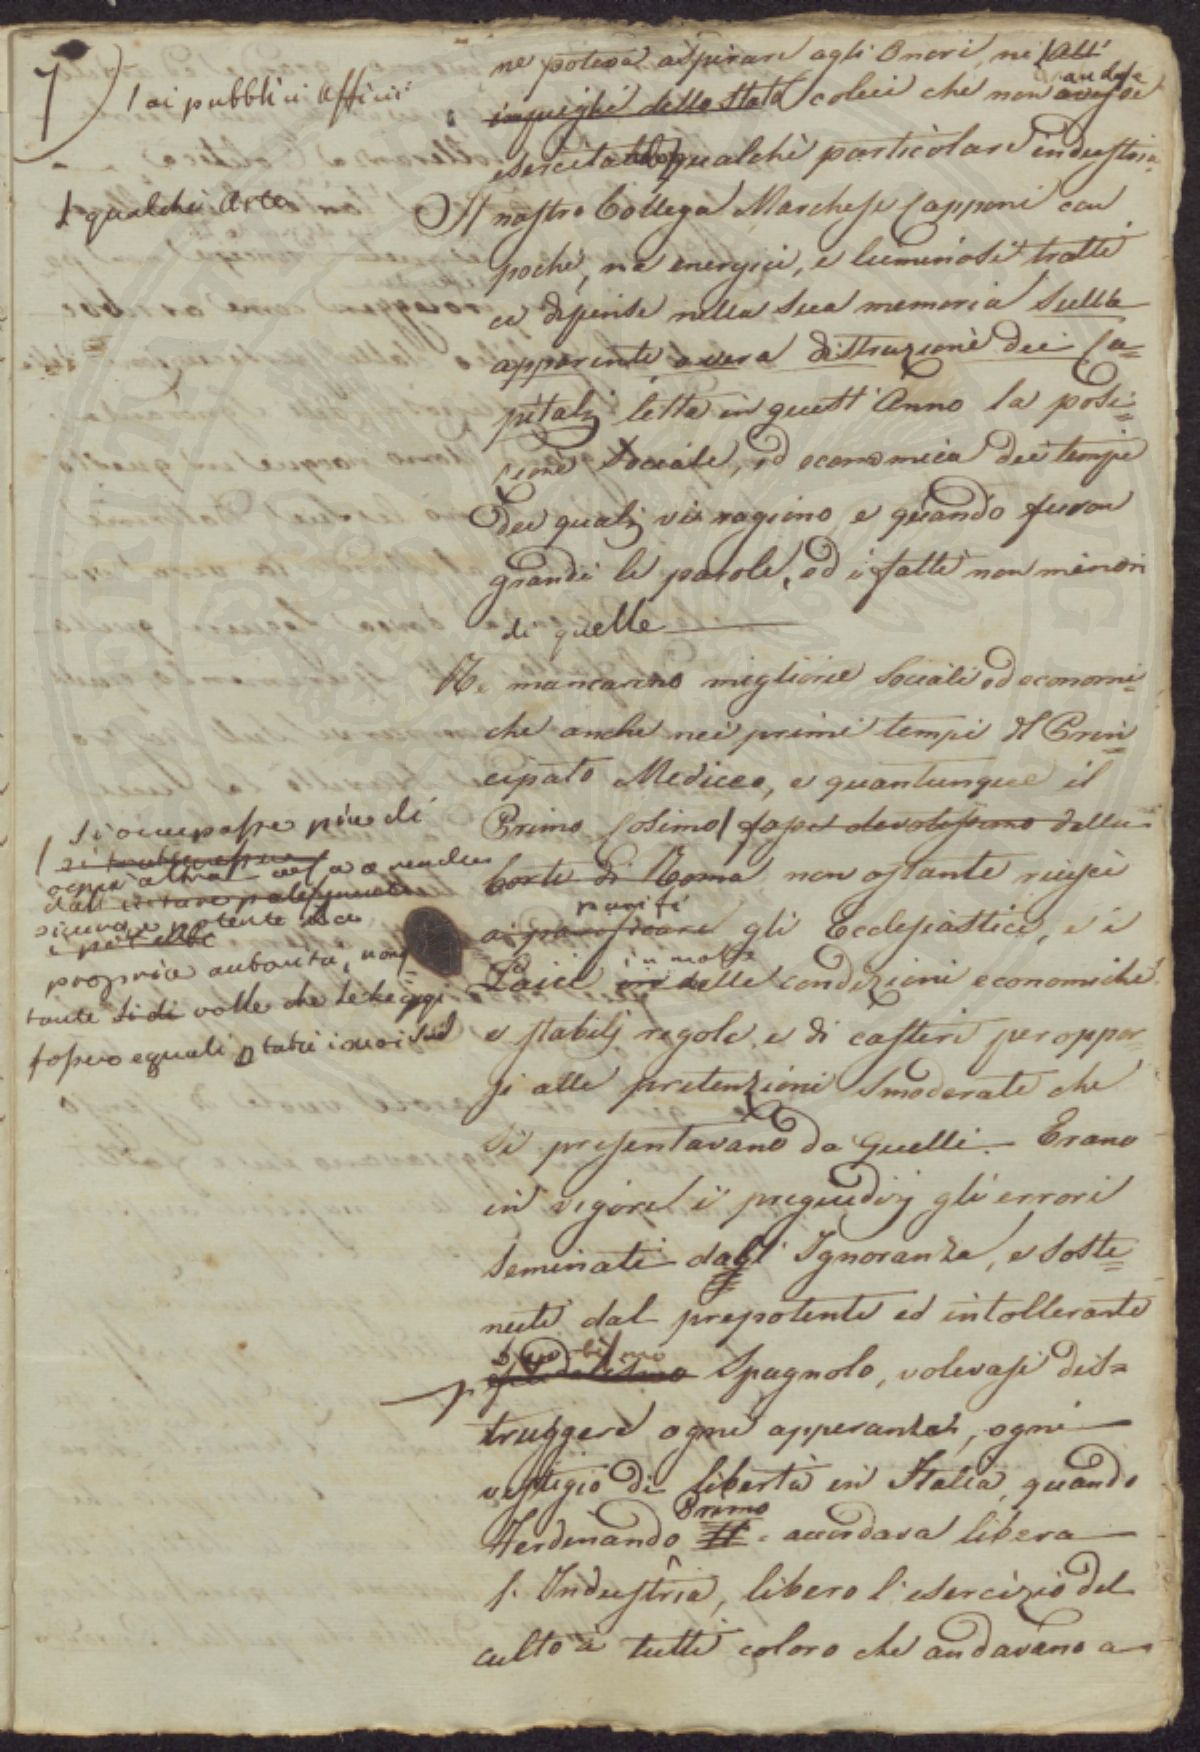 7)
/ ai pubblici Affici
ne poteva aspirare agli Onori, ne /alli
impieghi dello Stato colui che non andasse
esercitando qualche particolare industria
/ qualche Arte
Il nostro Collega Marchese Capponi con
pochi, ma energici, e luminosi tratti
ce dipinse nella sua memoria sulla
apparente o vera distruzione dei Ca=
pitalj letta in quest' Anno la posi=
zione Sociale, ed economica dei tempi
dei qualj vi ragiono e quando furon
grandi le parole, ed i fatti non minori
di quelle
Ne mancarono migliorie Sociali ed economi=
che anche nei primi tempi del Prin=
cipato Mediceo, e quantunque il
Primo Cosimo / fosse devotissimo della
Corte di Roma non ostante riuscì
parificò
a parificare gli Ecclesiastici, e i
Laici in molte delle condizioni economiche
e stabilj regole e di casteri per oppor=
si alle pretenzioni smoderate che
si presentavano da Quelli. Erano
in vigore i pregiudizj gli errori
seminati dagl' Ignoranza, e soste=
nuti dal prepotente ed intollerante
feudalismo Spagnolo, volevasi dis=
truggere ogni apperanza, ogni
vestigio di libertà in Italia, quando
Primo
Ferdinando II accordava libera
l' Industria, libero l' esercizio del
culto a tutti coloro che andavano a
/ si occupasse più di
ogni altra cosa a render
sicura e potente la
propria autorità, non
tante volle che le Leggi
fossero eguali p tutti i suoi Sud